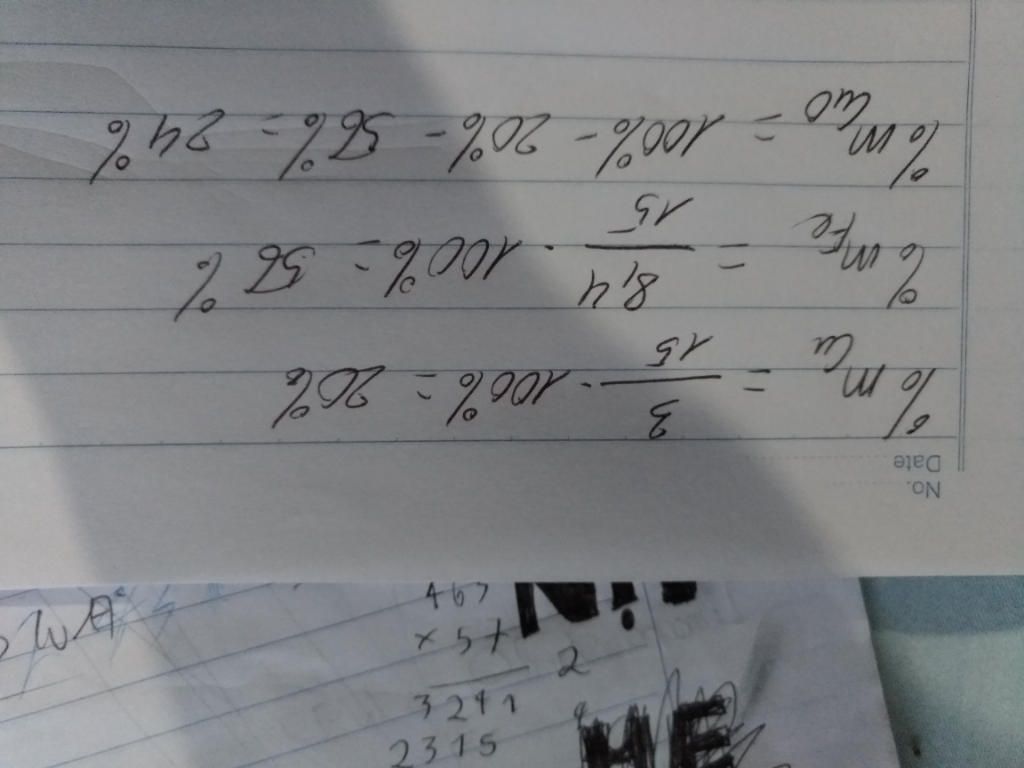 No.
Date
%m Cu = 3/15 . 100% = 20%
%m Fe = 8,4/15 . 100% = 56%
%m CuO = 100% - 20% - 56% = 24%
463
× 57
2
3241
2315
HE